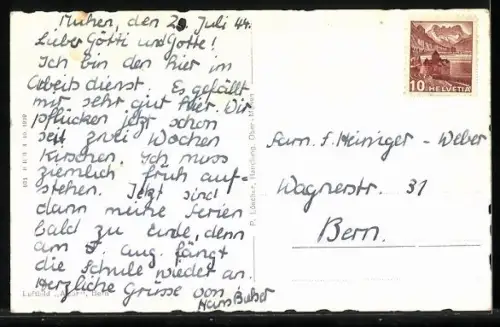 Muhen, den 29 Juli 44.
Lieber Götti und Gotte!
Ich bin den hier im
Arbeitsdienst. Es gefällt
mir sehr gut hier. Wir
pflücken jetzt schon
seit zwei Wochen
Kirschen. Ich muss
ziemlich früh auf-
stehen. Jetzt sind
dann meine Ferien
bald zu Ende, denn
am 7. Aug. fängt
die Schule wieder an.
Herzliche Grüsse von
Hans
Luftbild
Bern
P. Lüscher, Handlung, Ober-Muhen
10 HELVETIA
Fam. F. Meiniger - Weber
Wagnerstr. 31
Bern.